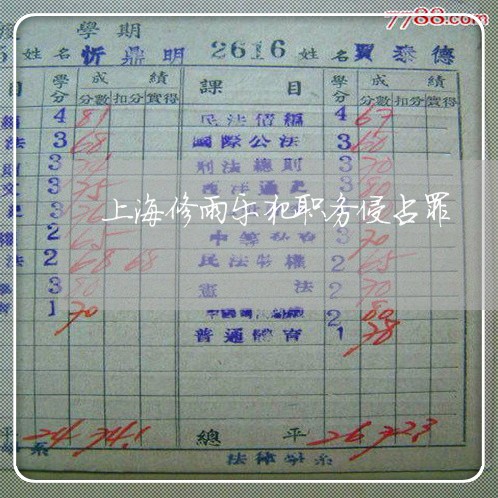 7788.com
學期
姓名 忻鼎明 2616 姓名 賈泰德
目 學分 成績 課目 學分 成績
分數 扣分 實得 分數 扣分 實得
4 81 民法債編 4 67
法 3 68 國際公法 3 60
3 刑法總則 3 70
3 75 3 80
上海修雨乐犯职务侵占罪
2 65 3 70
2 68 68 民法物權 2 65
3 80 憲法 2 70
1 70 2 80
普通體育 1 78
平 24 74.1 總平 26 72.3
系 法律學系